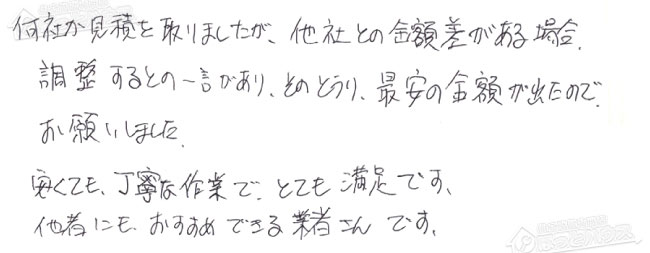 何社か見積を取りましたが、他社との金額差がある場合、
調整するとの一言があり、そのとうり、最安の金額が出たので、
お願いしました。
安くても、丁寧な作業で、とても満足です。
他者にも、おすすめできる業者さんです。